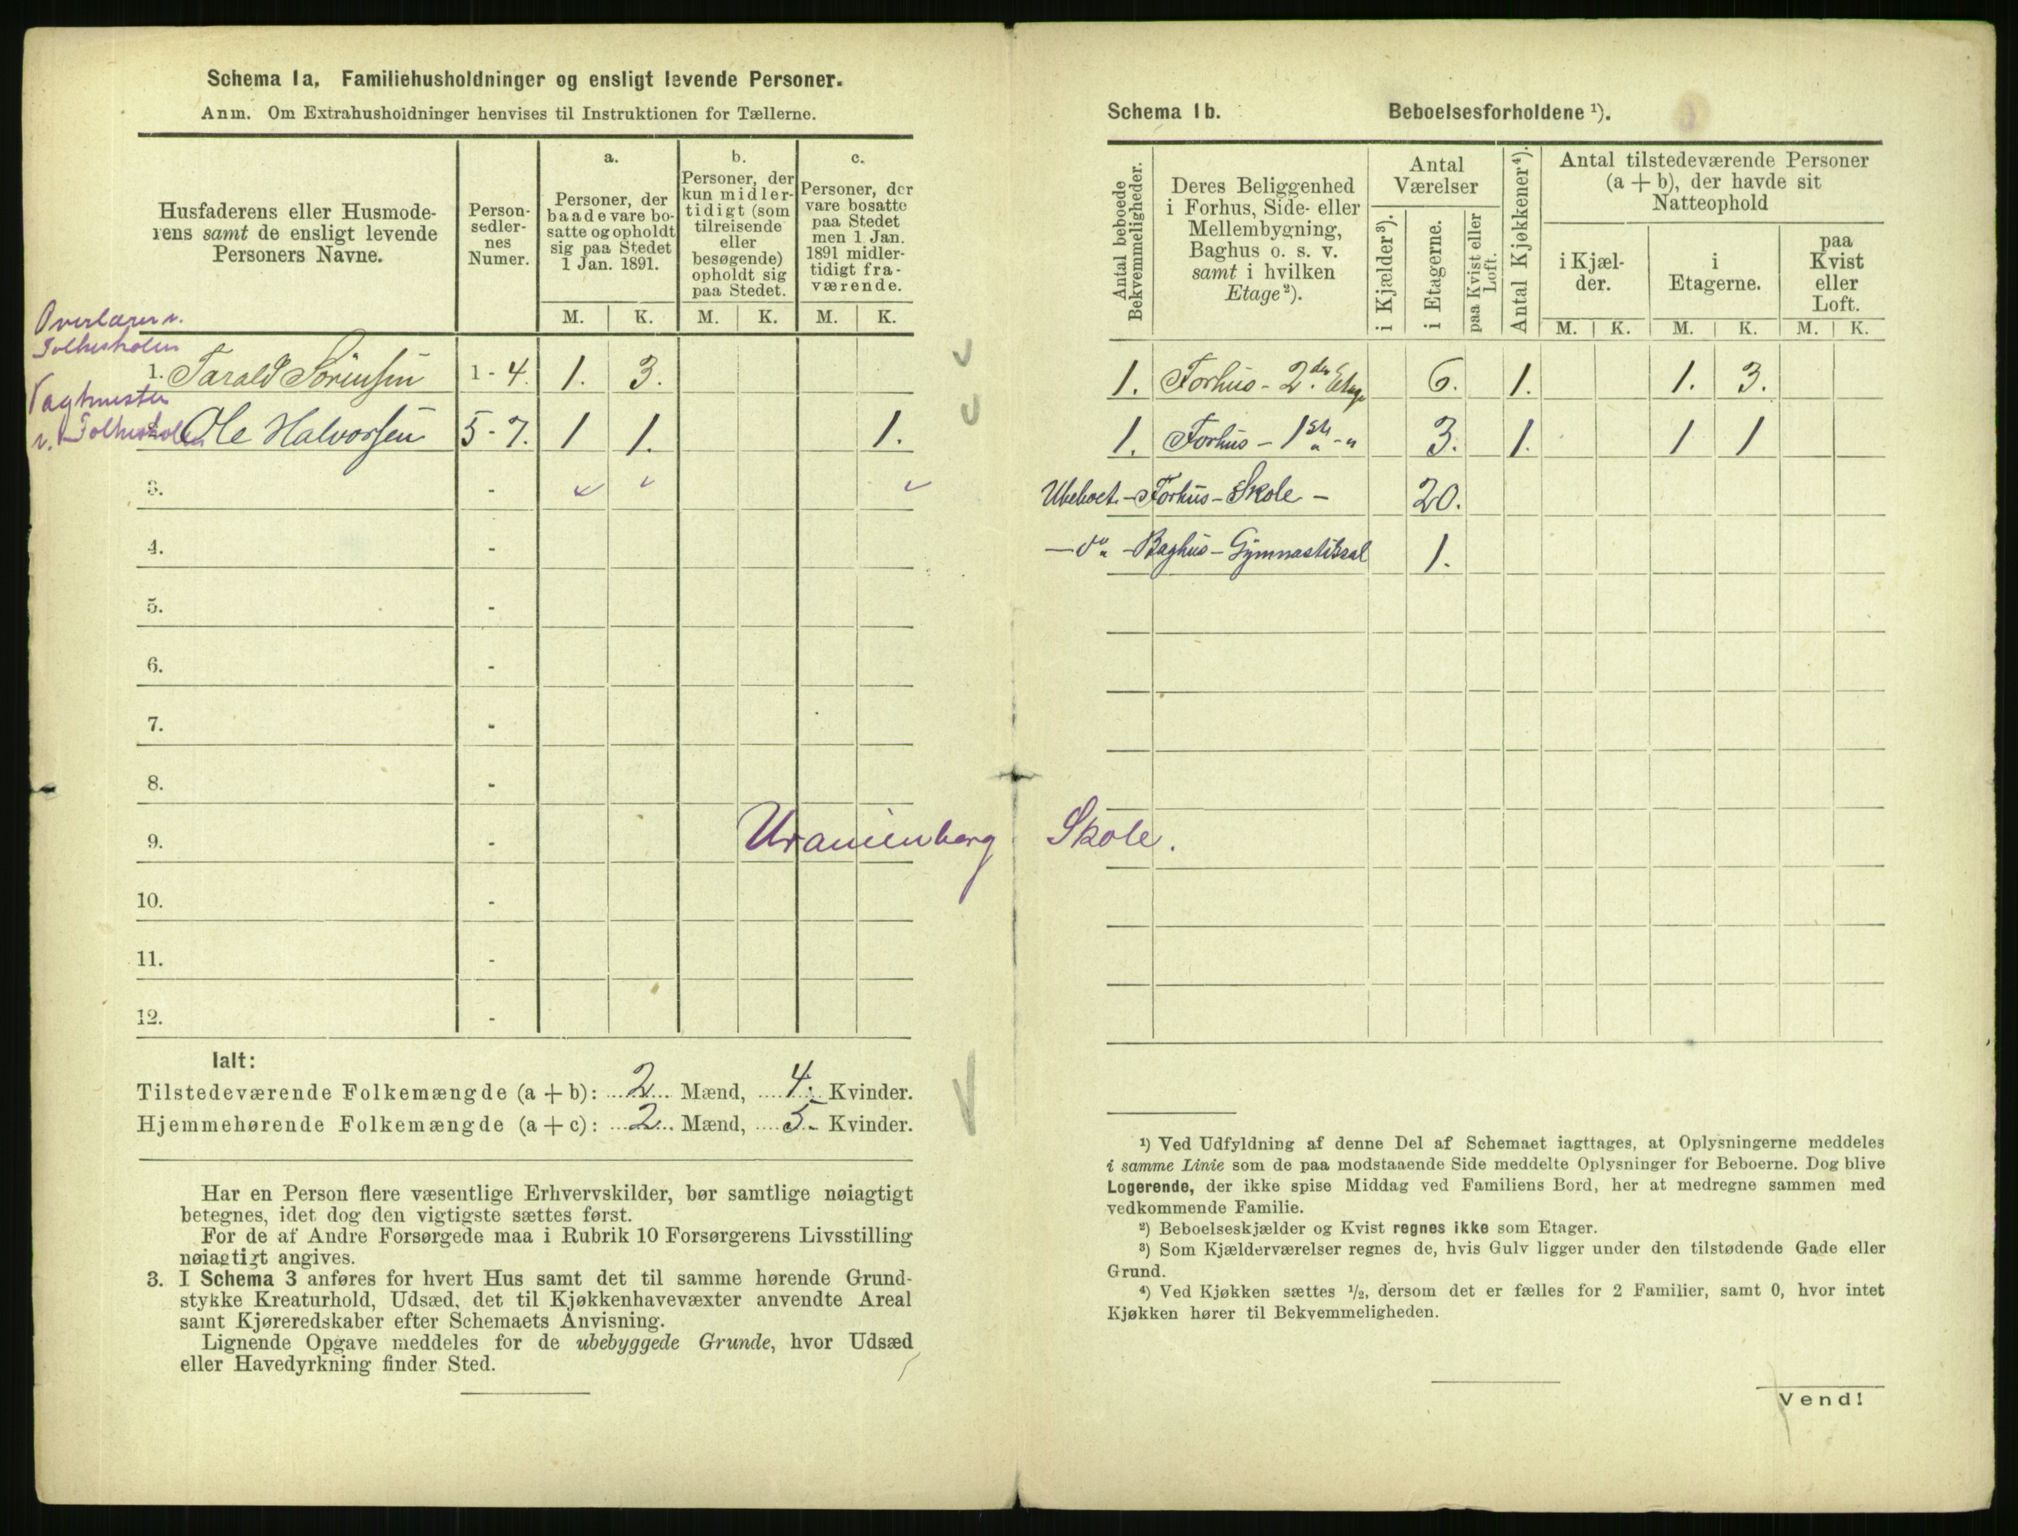 Schema 1a. Familiehusholdninger og ensligt levende Personer.
Anm. Om Extrahusholdninger henvises til Instruktionen for Tællerne.
Husfaderens eller Husmode-
rens samt de ensligt levende
Personers Navne.
Person-
sedler-
nes
Numer.
a.
Personer, der
baade vare bo-
satte og opholdt
sig paa Stedet
1 Jan. 1891.
b.
Personer, der
kun midler-
tidigt (som
tilreisende
eller
besøgende)
opholdt sig
paa Stedet.
c.
Personer, der
vare bosatte
paa Stedet
men 1. Jan.
1891 midler-
tidigt fra-
værende.
M. K. M. K. M. K.
Overlærer v.
Folkeskolen
1. Tarald Sörensen 1 - 4. 1. 3.
Vagtmester
v. Folkeskolen Ole Halvorsen 5 - 7. 1 1. 1.
3. -
4. -
5. -
6. -
7. -
8. -
9. -
10. -
11. -
12. -
Uranienborg Skole.
Ialt:
Tilstedeværende Folkemængde (a + b): 2 Mænd, 4. Kvinder.
Hjemmehørende Folkemængde (a + c): 2 Mænd, 5 Kvinder.
Har en Person flere væsentlige Erhvervskilder, bør samtlige nøiagtigt
betegnes, idet dog den vigtigste sættes først.
For de af Andre Forsørgede maa i Rubrik 10 Forsørgerens Livsstilling
nøiagtigt angives.
3. I Schema 3 anføres for hvert Hus samt det til samme hørende Grund-
stykke Kreaturhold, Udsæd, det til Kjøkkenhavevæxter anvendte Areal
samt Kjøreredskaber efter Schemaets Anvisning.
Lignende Opgave meddeles for de ubebyggede Grunde, hvor Udsæd
eller Havedyrkning finder Sted.
Schema 1b. Beboelsesforholdene ¹).
Antal beboede
Bekvemmeligheder.
Deres Beliggenhed
i Forhus, Side- eller
Mellembygning,
Baghus o. s. v.
samt i hvilken
Etage²).
Antal
Værelser
i Kjælder³).
i Etagerne.
paa Kvist eller
Loft.
Antal Kjøkkener⁴).
Antal tilstedeværende Personer
(a + b), der havde sit
Natteophold
i Kjæl-
der.
i
Etagerne.
paa
Kvist
eller
Loft.
M. K. M. K. M. K.
1. Forhus - 2den Etage 6. 1. 1. 3.
1. Forhus - 1ste " - " 3. 1. 1 1
Ubeboet - Forhus - Skole - 20.
- do " - Baghus - Gymnastiksal 1.
¹) Ved Udfyldning af denne Del af Schemaet iagttages, at Oplysningerne meddeles
i samme Linie som de paa modstaaende Side meddelte Oplysninger for Beboerne. Dog blive
Logerende, der ikke spise Middag ved Familiens Bord, her at medregne sammen med
vedkommende Familie.
²) Beboelseskjælder og Kvist regnes ikke som Etager.
³) Som Kjælderværelser regnes de, hvis Gulv ligger under den tilstødende Gade eller
Grund.
⁴) Ved Kjøkken sættes ½, dersom det er fælles for 2 Familier, samt 0, hvor intet
Kjøkken hører til Bekvemmeligheden.
Vend!